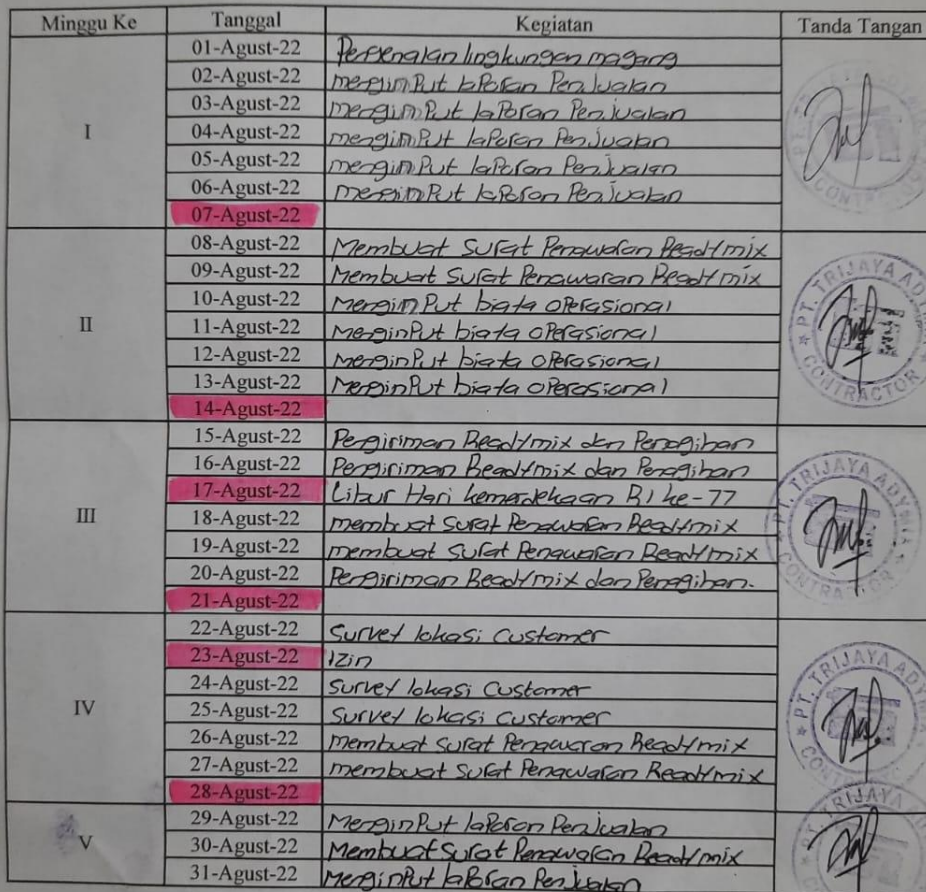 Minggu Ke Tanggal Kegiatan Tanda Tangan
I
01-Agust-22 Pengenalan lingkungan magang
02-Agust-22 menginput laporan Penjualan
03-Agust-22 menginput laporan Penjualan
04-Agust-22 menginput laporan Penjualan
05-Agust-22 menginput laporan Penjualan
06-Agust-22 menginput laporan Penjualan
07-Agust-22
II
08-Agust-22 Membuat Surat Penawaran Readymix
09-Agust-22 Membuat Surat Penawaran Readymix
10-Agust-22 Menginput biaya operasional
11-Agust-22 Menginput biaya operasional
12-Agust-22 Menginput biaya operasional
13-Agust-22 Menginput biaya operasional
14-Agust-22
PT. TRIJAYA
CONTRACTOR
III
15-Agust-22 Pengiriman Readymix dan Penagihan
16-Agust-22 Pengiriman Readymix dan Penagihan
17-Agust-22 Libur Hari kemerdekaan RI ke-77
18-Agust-22 membuat Surat Penawaran Readymix
19-Agust-22 membuat Surat Penawaran Readymix
20-Agust-22 Pengiriman Readymix dan Penagihan.
21-Agust-22
PT. TRIJAYA ADYNIA
CONTRACTOR
IV
22-Agust-22 Survey lokasi Customer
23-Agust-22 Izin
24-Agust-22 Survey lokasi Customer
25-Agust-22 Survey lokasi Customer
26-Agust-22 membuat Surat Penawaran Readymix
27-Agust-22 membuat Surat Penawaran Readymix
28-Agust-22
PT. TRIJAYA
V
29-Agust-22 Menginput laporan Penjualan
30-Agust-22 Membuat Surat Penawaran Readymix
31-Agust-22 Menginput laporan Penjualan